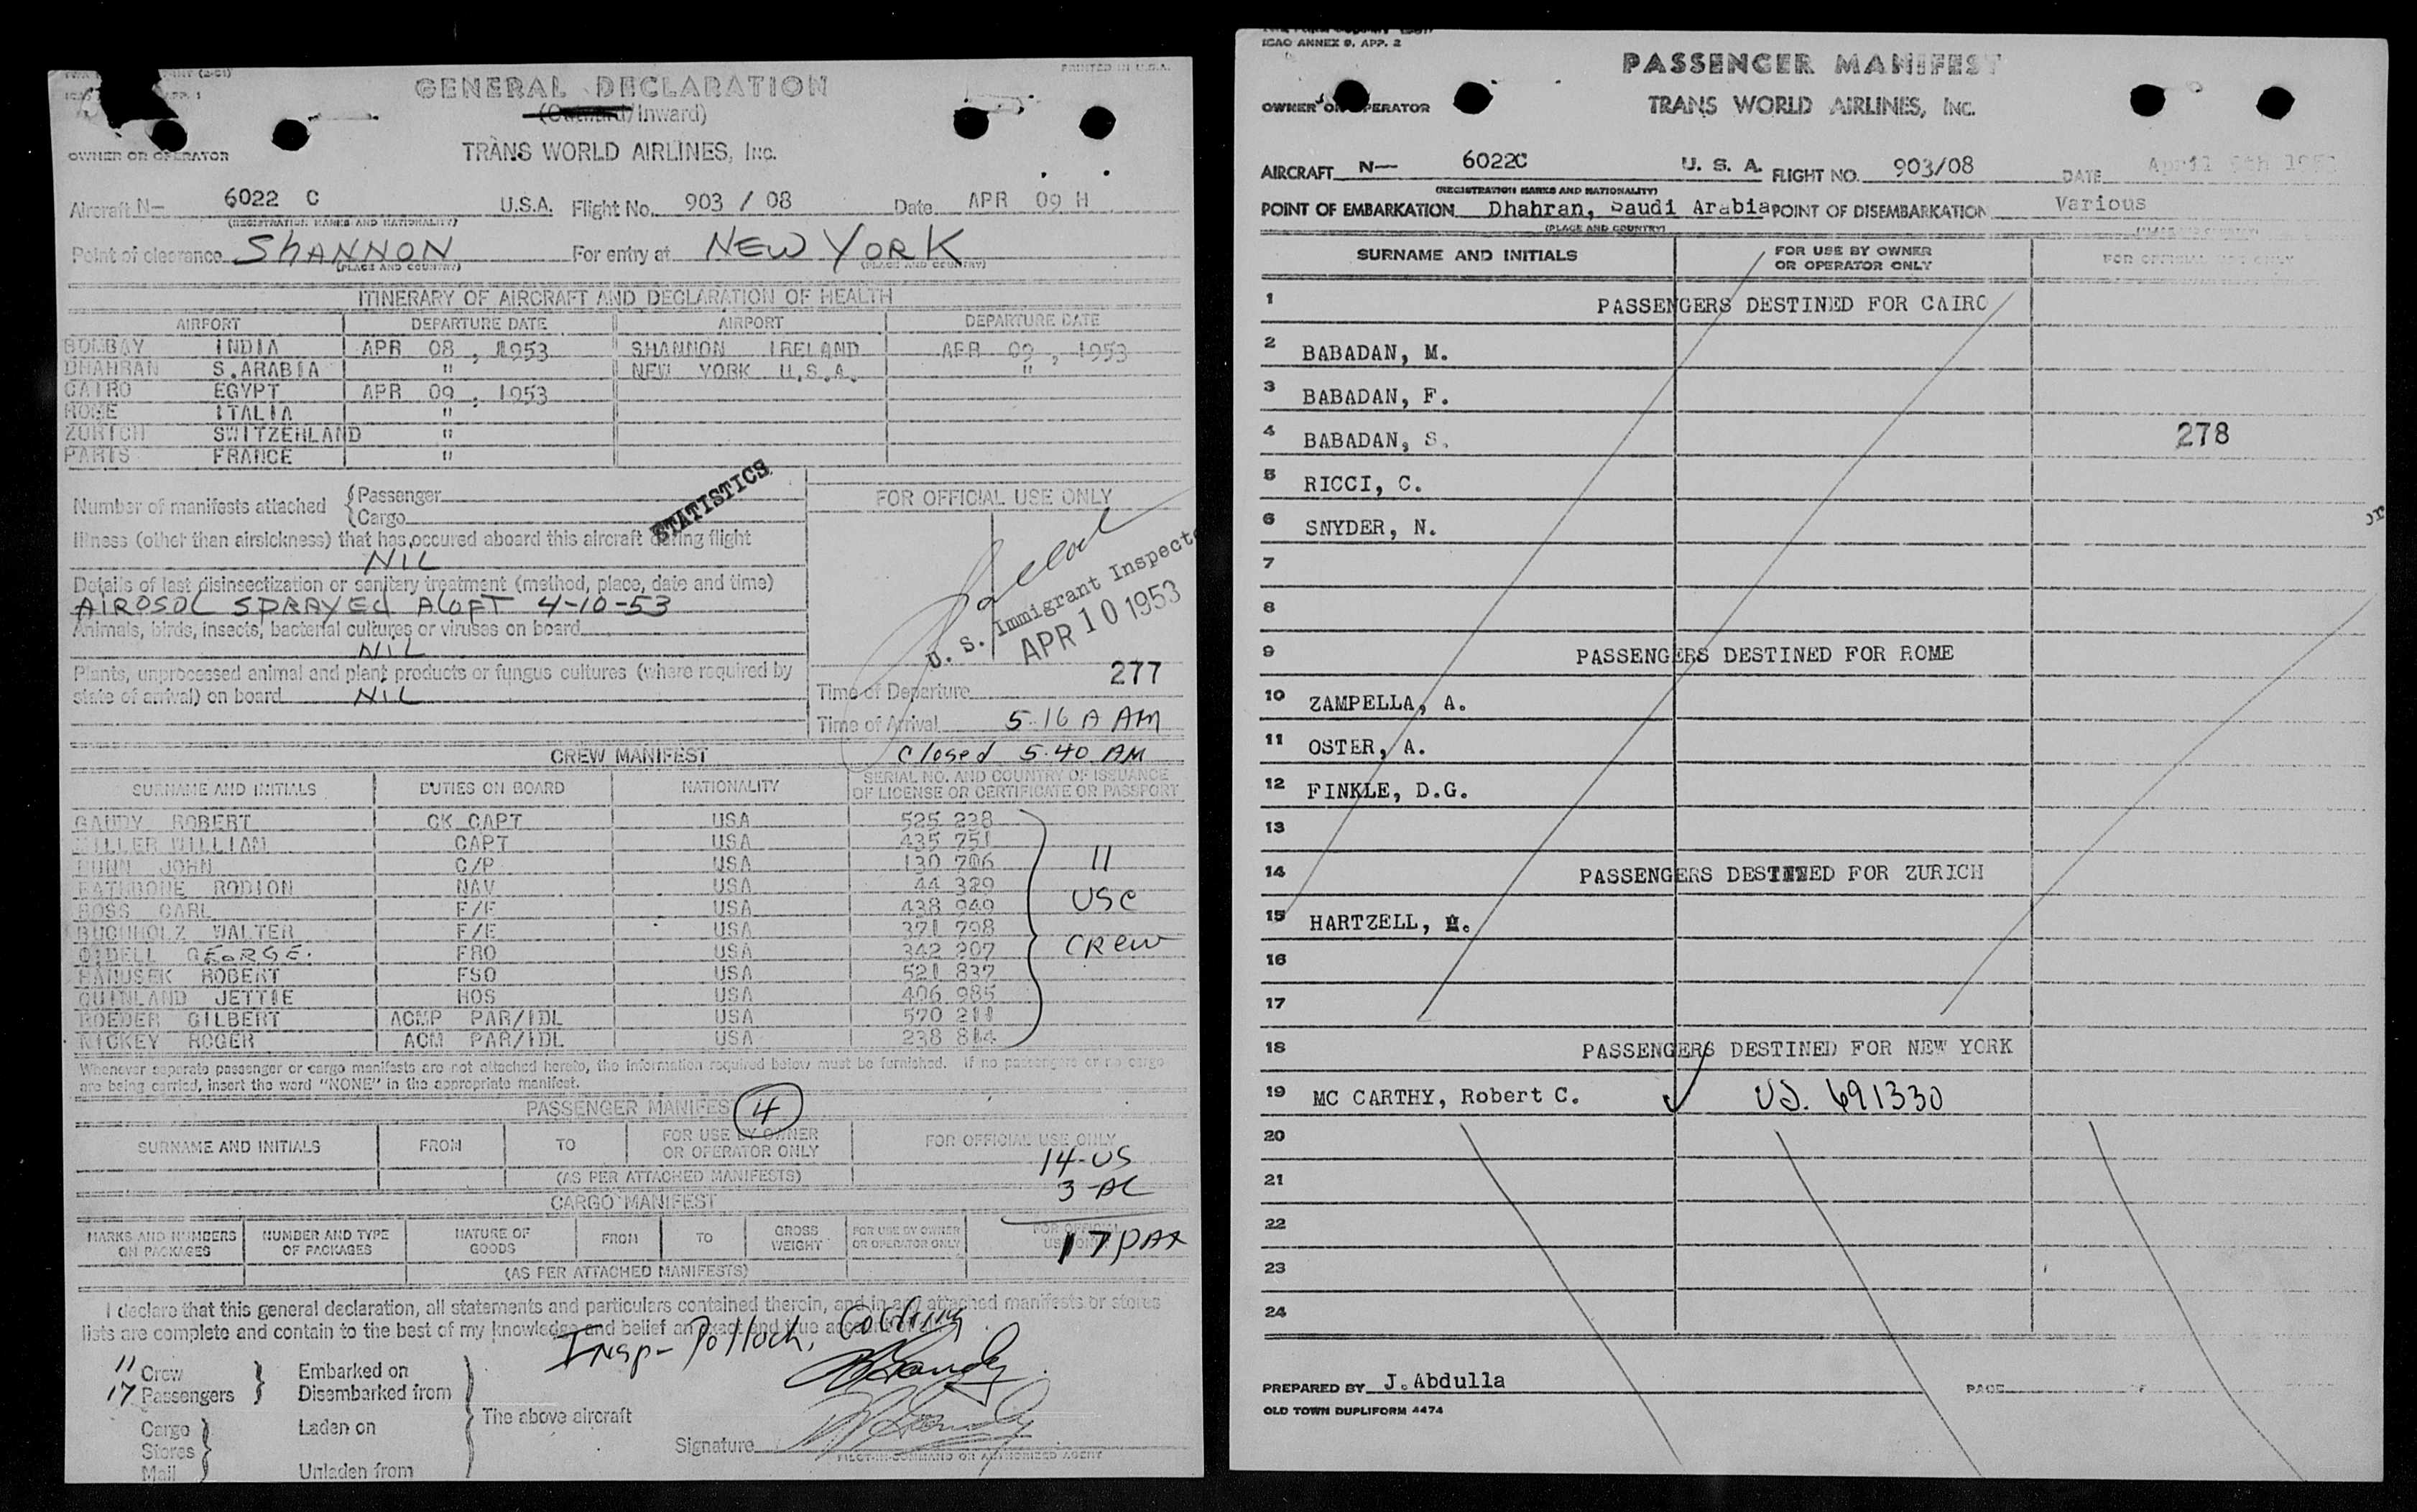 GENERAL DECLARATION
PRINTED IN U.S.A.
(Outward/Inward)
OWNER OR OPERATOR
TRANS WORLD AIRLINES, Inc.
Aircraft N— 6022 C U.S.A. Flight No. 903 / 08 Date APR 09 H
(REGISTRATION MARKS AND NATIONALITY)
Point of clearance SHANNON For entry at NEW YORK
(PLACE AND COUNTRY) (PLACE AND COUNTRY)
ITINERARY OF AIRCRAFT AND DECLARATION OF HEALTH
AIRPORT DEPARTURE DATE AIRPORT DEPARTURE DATE
BOMBAY INDIA APR 08 , 1953 SHANNON IRELAND APR 09 , 1953
DHAHRAN S.ARABIA " NEW YORK U.S.A. "
CAIRO EGYPT APR 09 , 1953
ROME ITALIA "
ZURICH SWITZERLAND "
PARIS FRANCE "
STATISTICS
Number of manifests attached {Passenger
{Cargo
FOR OFFICIAL USE ONLY
Illness (other than airsickness) that has occured aboard this aircraft during flight
NIL
Details of last disinsectization or sanitary treatment (method, place, date and time)
AIROSOL SPRAYED ALOFT 4-10-53
Animals, birds, insects, bacterial cultures or viruses on board
NIL
Plants, unprocessed animal and plant products or fungus cultures (where required by
state of arrival) on board NIL
U. S. Immigrant Inspector
APR 10 1953
277
Time of Departure
Time of Arrival 5.16 A AM
Closed 5.40 AM
CREW MANIFEST
SURNAME AND INITIALS DUTIES ON BOARD NATIONALITY SERIAL NO. AND COUNTRY OF ISSUANCE
OF LICENSE OR CERTIFICATE OR PASSPORT
GAUDY ROBERT CK CAPT USA 525 238
MILLER WILLIAM CAPT USA 435 751
JOHN C/P USA 130 706
RATHBONE RODION NAV USA 44 329
ROSS CARL F/E USA 438 949
BUCHHOLZ WALTER F/E USA 371 798
GEORGE. FRO USA 342 207
HANUSEK ROBERT FSO USA 521 837
QUINLAND JETTIE HOS USA 406 985
ROEDER GILBERT ACMP PAR/IDL USA 570 211
ROGER ACM PAR/IDL USA 238 814
11
USC
CREW
Whenever separate passenger or cargo manifests are not attached hereto, the information required below must be furnished. If no passengers or no cargo
are being carried, insert the word "NONE" in the appropriate manifest.
PASSENGER MANIFEST 4
SURNAME AND INITIALS FROM TO FOR USE BY OWNER
OR OPERATOR ONLY FOR OFFICIAL USE ONLY
14-US
(AS PER ATTACHED MANIFESTS) 3-AL
CARGO MANIFEST
MARKS AND NUMBERS
ON PACKAGES NUMBER AND TYPE
OF PACKAGES NATURE OF
GOODS FROM TO GROSS
WEIGHT FOR USE BY OWNER
OR OPERATOR ONLY FOR OFFICIAL
USE ONLY
17 PAX
(AS PER ATTACHED MANIFESTS)
I declare that this general declaration, all statements and particulars contained therein, and in any attached manifests or stores
lists are complete and contain to the best of my knowledge and belief an exact and true account
Insp- Pollock,
11 Crew } Embarked on
17 Passengers } Disembarked from
Cargo Laden on
The above aircraft
Stores
Mail Unladen from
Signature
PILOT-IN-COMMAND OR AUTHORIZED AGENT
ICAO ANNEX 9, APP. 2
PASSENGER MANIFEST
OWNER OR OPERATOR TRANS WORLD AIRLINES, Inc.
AIRCRAFT N— 6022C U. S. A. FLIGHT NO. 903/08 DATE April 1953
(REGISTRATION MARKS AND NATIONALITY)
POINT OF EMBARKATION Dhahran, Saudi Arabia POINT OF DISEMBARKATION Various
(PLACE AND COUNTRY) (PLACE AND COUNTRY)
SURNAME AND INITIALS FOR USE BY OWNER
OR OPERATOR ONLY FOR OFFICIAL USE ONLY
1 PASSENGERS DESTINED FOR CAIRO
2 BABADAN, M.
3 BABADAN, F.
4 BABADAN, S. 278
5 RICCI, C.
6 SNYDER, N.
or
7
8
9 PASSENGERS DESTINED FOR ROME
10 ZAMPELLA, A.
11 OSTER, A.
12 FINKLE, D.G.
13
14 PASSENGERS DESTINED FOR ZURICH
15 HARTZELL,
16
17
18 PASSENGERS DESTINED FOR NEW YORK
19 MC CARTHY, Robert C. ✓ US. 691330
20
21
22
23
24
PREPARED BY J.Abdulla PAGE OF
OLD TOWN DUPLIFORM 4474